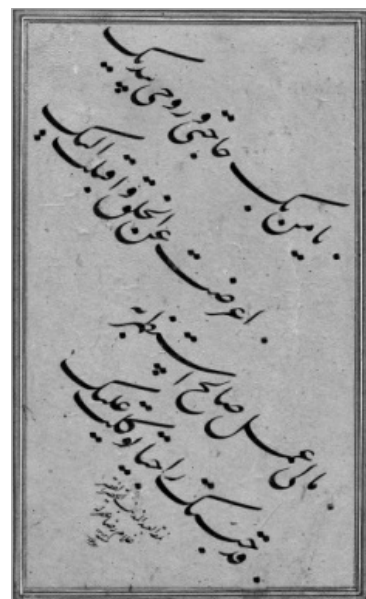 يا من بك حاجتي و روحي بيديك
اعرضت عن الخلق و اقبلت اليك
مالي عمل صالح استظهر به
قد جئتك راجيا توكلت عليك